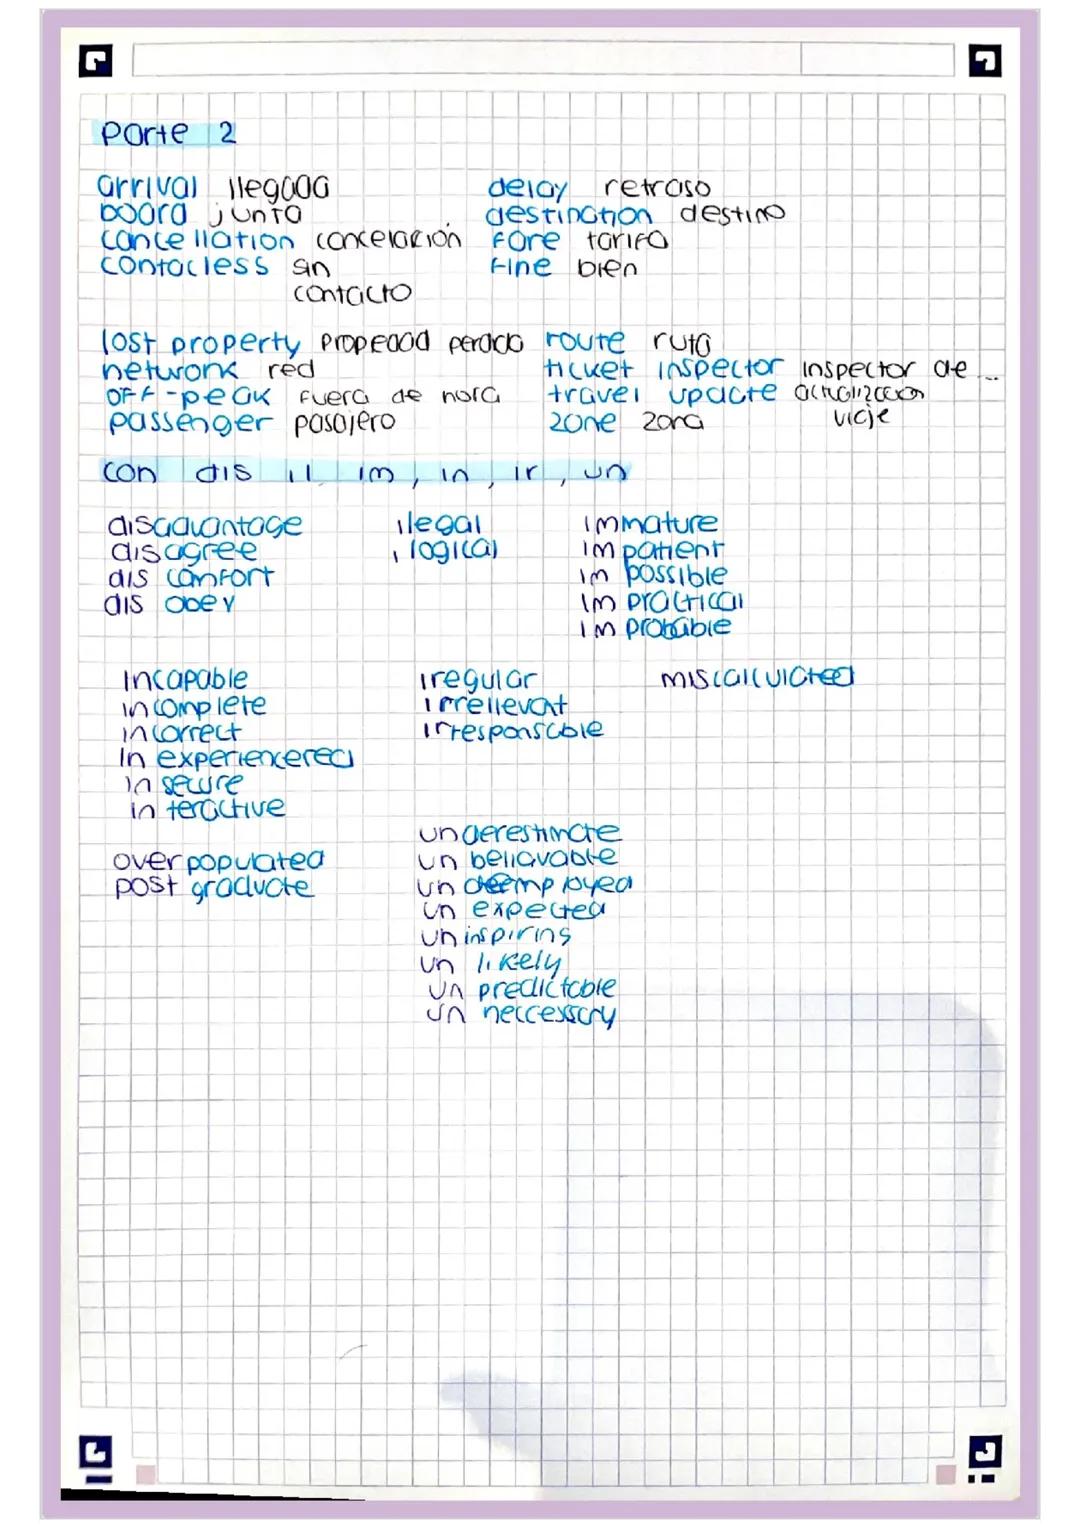 Parte 2
arrival llegada
board junta
cancellation cancelación
contacless sin
contacto
delay retraso
destination destino
fare tarifa
fine bien
lost property propedad perdido
network red
off-peak fuera de hora
passenger pasajero
route ruta
ticket inspector inspector de ...
travel update actualización
viaje
zone zona
con dis il im, in, ir, un
disadvantage
disagree
dis comfort
dis obey
ilegal
ilogical
immature
im patient
im possible
im practical
im probable
incapable
in complete
in correct
In experiencered
in secure
in teractive
iregular
irrellevat
irresponsable
miscalculated
over populated
post graduate
un derestimate
un beliavable
un deemployed
un expected
un inspiring
un likely
un predictable
un neccessary